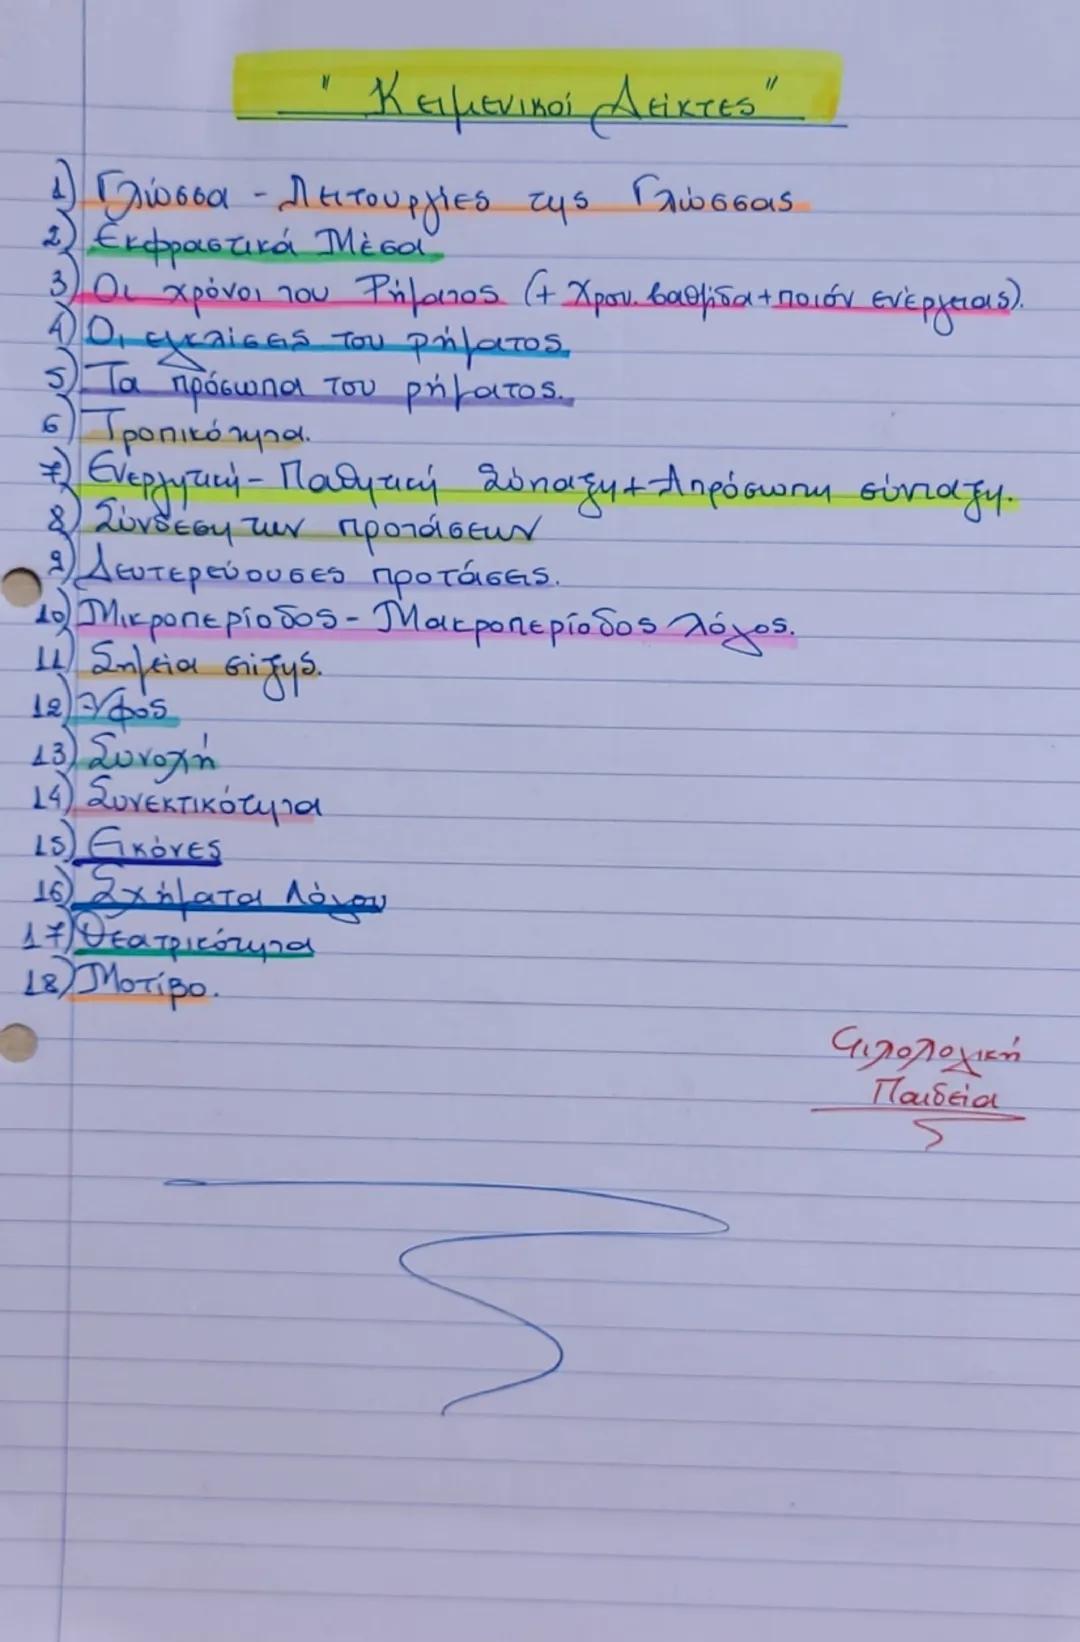 "Κειμενικοί Δείκτες"
1) Γλώσσα - Λειτουργίες της Γλώσσας
2) Εκφραστικά Μέσα
3) Οι χρόνοι του Ρήματος (+ Χρον. βαθμίδα + ποιόν ενέργειας).
4) Οι εγκλίσεις του ρήματος.
5) Τα πρόσωπα του ρήματος.
6) Τροπικότητα.
7) Ενεργητική - Παθητική Σύνταξη + Απρόσωπη σύνταξη.
8) Σύνδεση των προτάσεων
9) Δευτερεύουσες προτάσεις.
10) Μικροπερίοδος - Μακροπερίοδος λόγος.
11) Σημεία στίξης.
12) Ύφος
13) Συνοχή
14) Συνεκτικότητα
15) Εικόνες
16) Σχήματα Λόγου
17) Θεατρικότητα
18) Μοτίβο.
Φιλολογική
Παιδεία